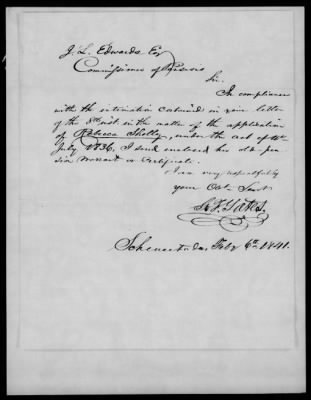 J. L. Edwards Esq
Commissioner of Pensions
Sir.
In compliance
with the intimation contained in your letter
of the inst. in the matter of the application
of Rebecca Shelly, under the act of 4th
July 1836, I send enclosed her old pen-
sion warrant or certificate.
I am very respectfully
your Obt Servt
Yates.
Schenectaday, Feby 6th 1841.